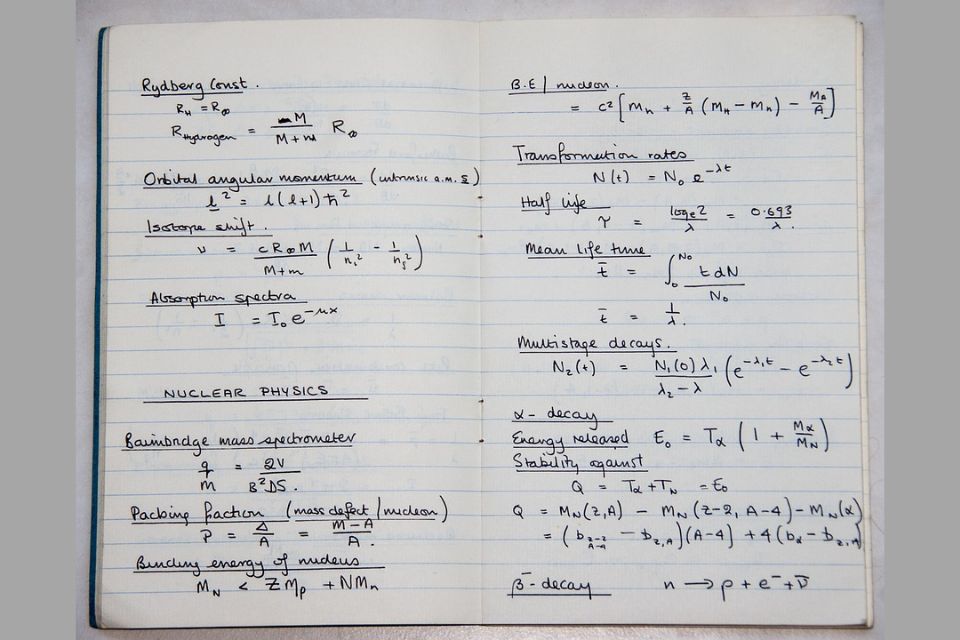 Rydberg Const.
R_H = R_∞
R_Hydrogen = M / M+m R_∞
Orbital angular momentum (intrinsic a.m. s)
l² = l(l+1)ħ²
Isotope shift.
ν = cR_∞M / M+m (1/n_i² - 1/n_f²)
Absorption spectra
I = I₀e^-μx
NUCLEAR PHYSICS
Bainbridge mass spectrometer
q/m = 2V / B²DS.
Packing fraction (mass defect/nucleon)
P = Δ/A = M-A / A.
Binding energy of nucleus
M_N < ZM_p + NM_n
B.E/nucleon.
= c²[M_n + Z/A (M_H - M_n) - M_A/A]
Transformation rates
N(t) = N₀ e^-λt
Half life
τ = log_e 2 / λ = 0.693 / λ.
Mean life time
t̄ = ∫₀^N₀ t dN / N₀
t̄ = 1/λ.
Multistage decays.
N₂(t) = N₁(0)λ₁ / λ₂-λ (e^-λ₁t - e^-λ₂t)
α-decay
Energy released E₀ = T_α (1 + M_α/M_N)
Stability against
Q = T_α + T_N = E₀
Q = M_N(Z,A) - M_N(Z-2, A-4) - M_N(α)
= (b_Z-2,A-4 - b_Z,A)(A-4) + 4(b_α - b_Z,A)
β⁻-decay n → p + e⁻ + ν̄